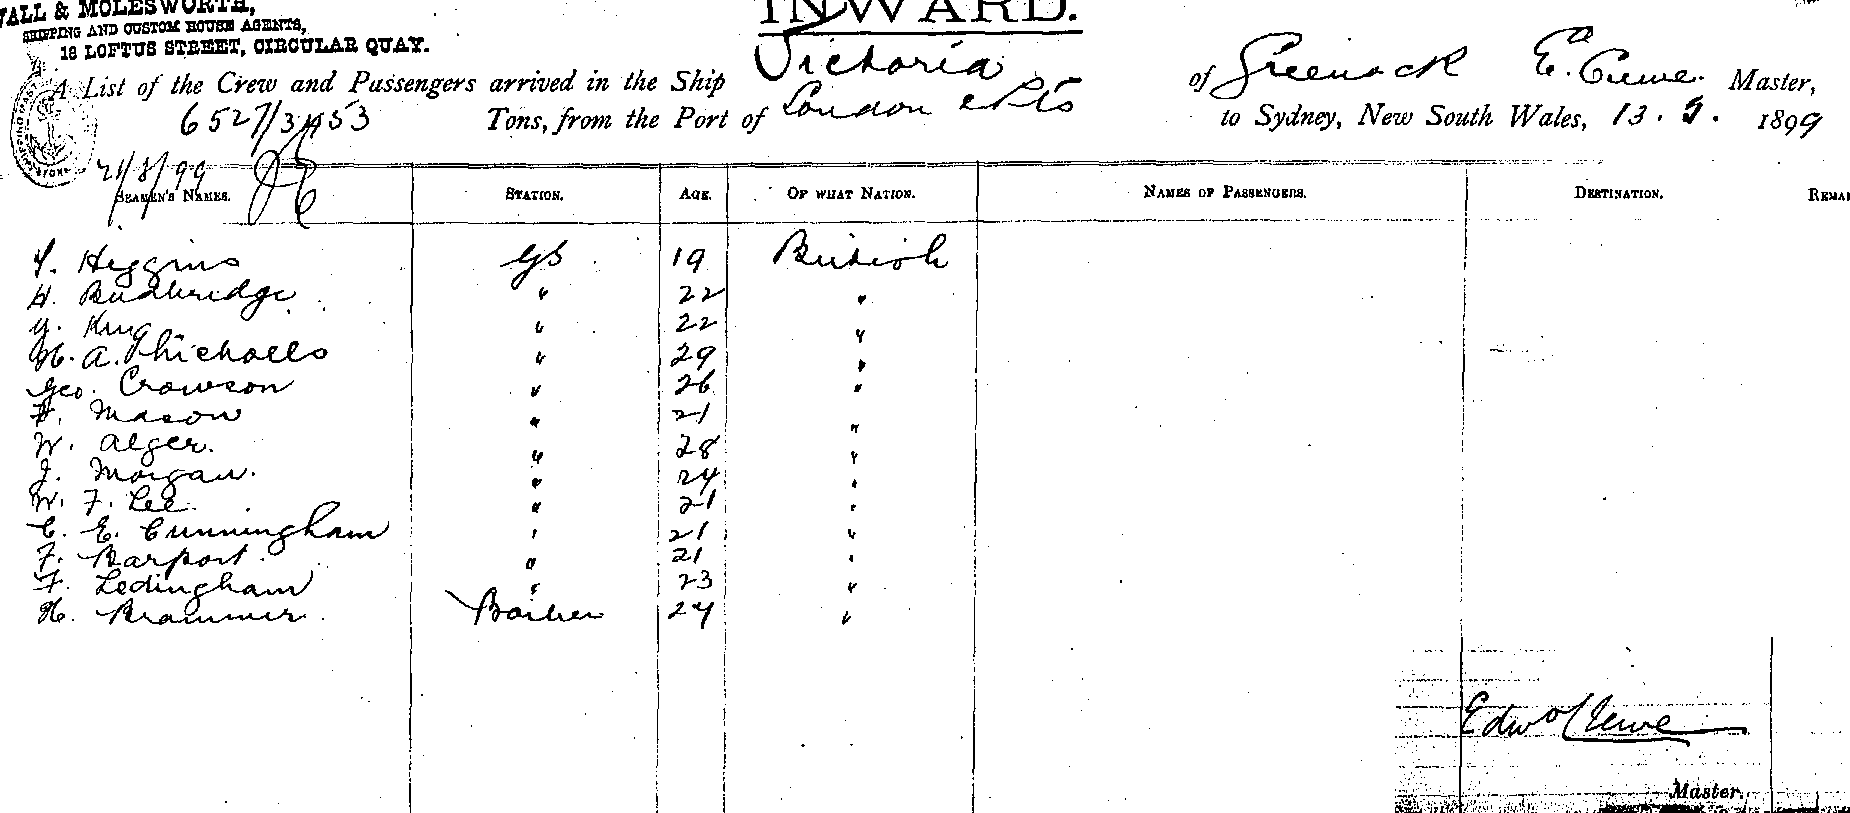 WALL & MOLESWORTH,
SHIPPING AND CUSTOM HOUSE AGENTS,
18 LOFTUS STREET, CIRCULAR QUAY.
INWARD.
A List of the Crew and Passengers arrived in the Ship Victoria of Greenock E. Crewe. Master,
6527/3453 Tons, from the Port of London & Pts to Sydney, New South Wales, 13. 9. 1899
21/8/99
SEAMEN'S NAMES. STATION. AGE. OF WHAT NATION. NAMES OF PASSENGERS. DESTINATION.
Higgins GS 19 British
H. Budbridge " 22 "
G. King " 22 "
H. A. Nicholls " 29 "
Geo. Crowson " 26 "
F. Mason " 21 "
W. Alger. " 28 "
J. Morgan. " 24 "
W. F. Lee " 21 "
C. E. Cunningham " 21 "
F. Barport. " 21 "
F. Ledingham " 23 "
H. Brammer. Barber 24 "
Edwd Crewe
Master.